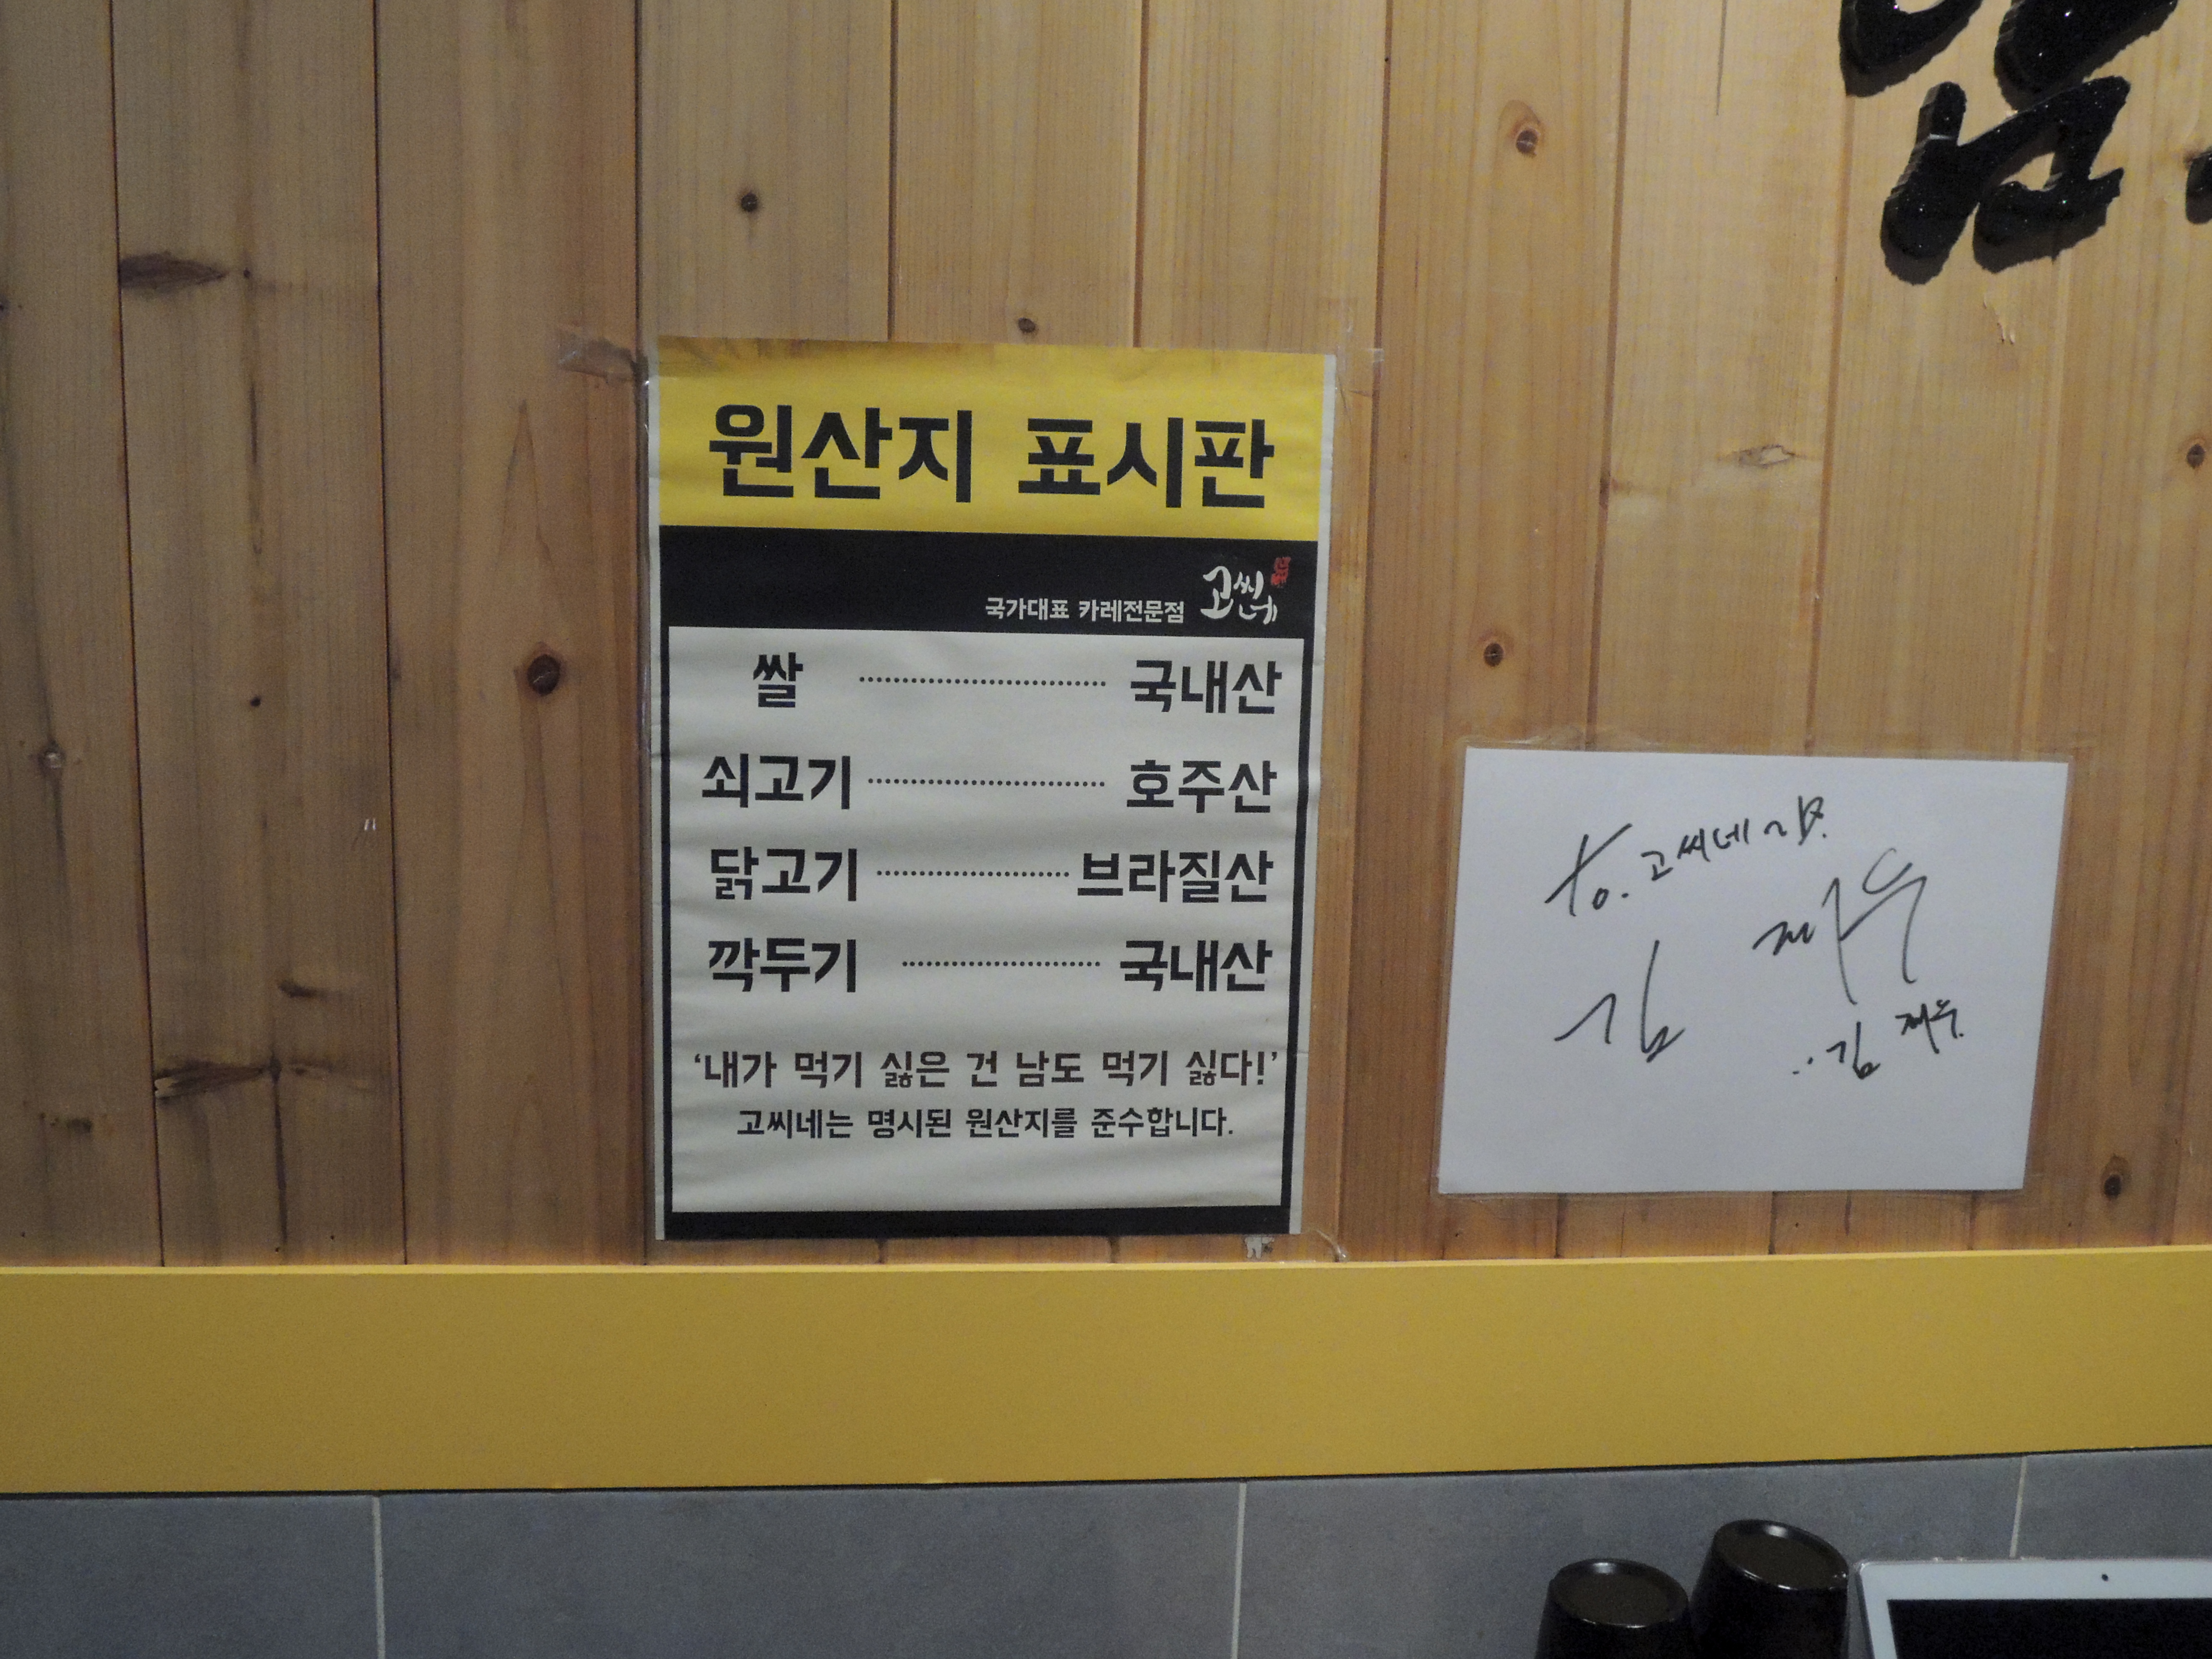 원산지 표시판
국가대표 카레전문점 고씨네
쌀 국내산
쇠고기 호주산
닭고기 브라질산
깍두기 국내산
'내가 먹기 싫은 건 남도 먹기 싫다!'
고씨네는 명시된 원산지를 준수합니다.
to. 고씨네
김 재우
김 재우